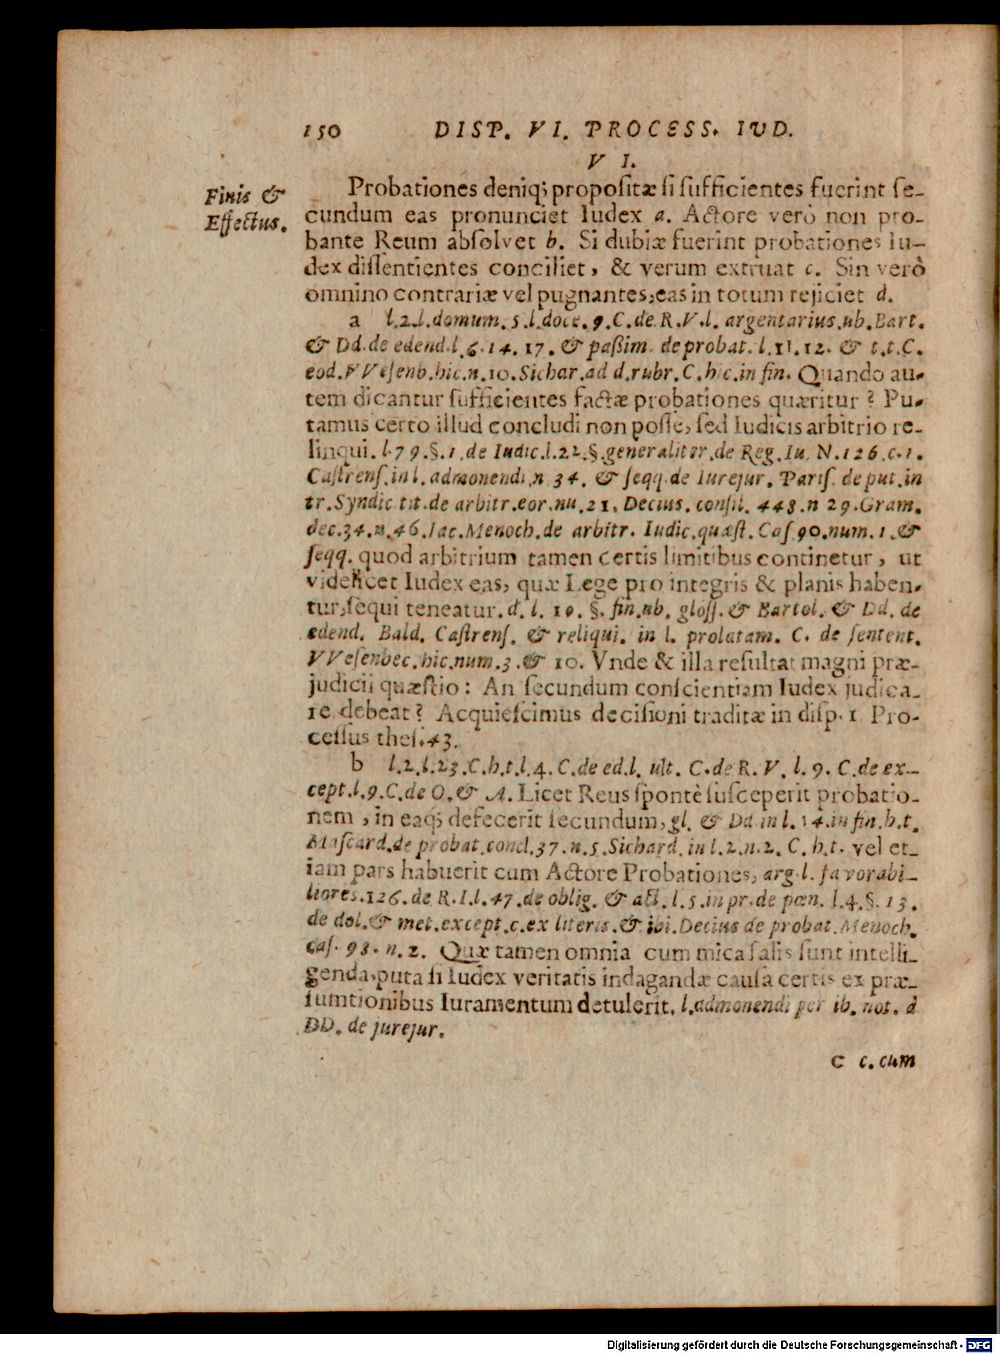 150 DISP. VI. PROCESS. IVD.
V I.
Finis &
Effectus.
Probationes deniq; propositæ si sufficientes fuerint se-
cundum eas pronunciet Iudex a. Actore verò non pro-
bante Reum absolvet b. Si dubiæ fuerint probationes Iu-
dex dissentientes conciliet, & verum extruat c. Sin verò
omnino contrariæ vel pugnantes, eas in totum rejiciet d.
a l.2.l.domum.5.l.doce.9.C.de R.V.l. argentarius.ub.Bart.
& Dd.de edend.l.6.14.17. & paßim. de probat.l.11.12. & t.t.C.
eod.VVesenb.hic.n.10.Sichar.ad d.rubr.C.hic.in fin. Quando au-
tem dicantur sufficientes factæ probationes quæritur? Pu-
tamus certo illud concludi non posse, sed Iudicis arbitrio re-
linqui. l.79.§.1.de Iudic.l.22.§.generaliter.de Reg.Iu. N.126.c.1.
Castrens.in l. admonendi.n 34. & seqq.de Iurejur. Paris. de put.in
tr. Syndic tit.de arbitr.eor.nu.21. Decius. consil. 448.n 29.Gram.
dec.34.n.46.Iac.Menoch.de arbitr. Iudic.quæst. Cas 90.num.1.&
seqq. quod arbitrium tamen certis limitibus continetur, ut
videlicet Iudex eas, quæ Lege pro integris & planis haben-
tur, sequi teneatur. d. l. 10. §. fin.ub. gloss. & Bartol. & Dd. de
edend. Bald. Castrens. & reliqui. in l. prolatam. C. de sentent.
VVesenbec.hic.num.3.& 10. Vnde & illa resultat magni præ-
judicii quæstio: An secundum conscientiam Iudex judica-
re debeat? Acquiescimus decisioni traditæ in disp. 1 Pro-
cessus thes.43.
b l.2.l.23.C.h.t.l.4.C.de ed.l. ult. C.de R.V. l. 9. C.de ex-
cept.l.9.C.de O.& A. Licet Reus spontè susceperit probatio-
nem, in eaq; defecerit secundum, gl. & Dd in l. 14.in fin.h.t.
Mascard.de probat.concl.37.n.5.Sichard.in l.2.n.2. C.h.t. vel et-
iam pars habuerit cum Actore Probationes, arg.l. favorabi-
liores.126.de R.I.l.47.de oblig. & act.l.5.in pr.de pœn. l.4.§.13.
de dol.& met.except.c.ex literis.& ibi.Decius de probat.Menoch.
cas. 93. n.2. Quæ tamen omnia cum mica salis sunt intelli-
genda, puta si Iudex veritatis indagandæ causa certis ex præ-
sumtionibus Iuramentum detulerit. l.admonendi per ib. not. à
DD. de jurejur.
C c.cum
Digitalisierung gefördert durch die Deutsche Forschungsgemeinschaft - DFG